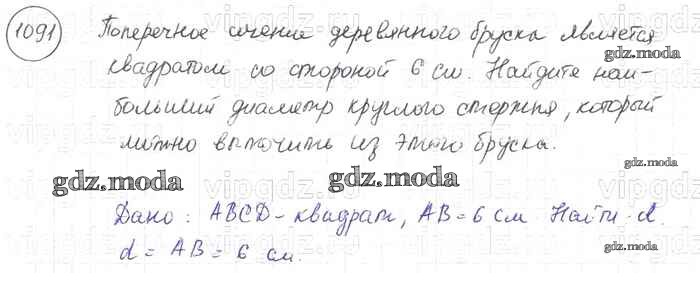 1091 Поперечное сечение деревянного бруска является
gdz.moda
квадратом со стороной 6 см. Найдите наи-
больший диаметр круглого стержня, который
можно выточить из этого бруска.
gdz.moda gdz.moda gdz.moda
Дано: ABCD - квадрат, AB = 6 см Найти d.
gdz.moda
d = AB = 6 см.